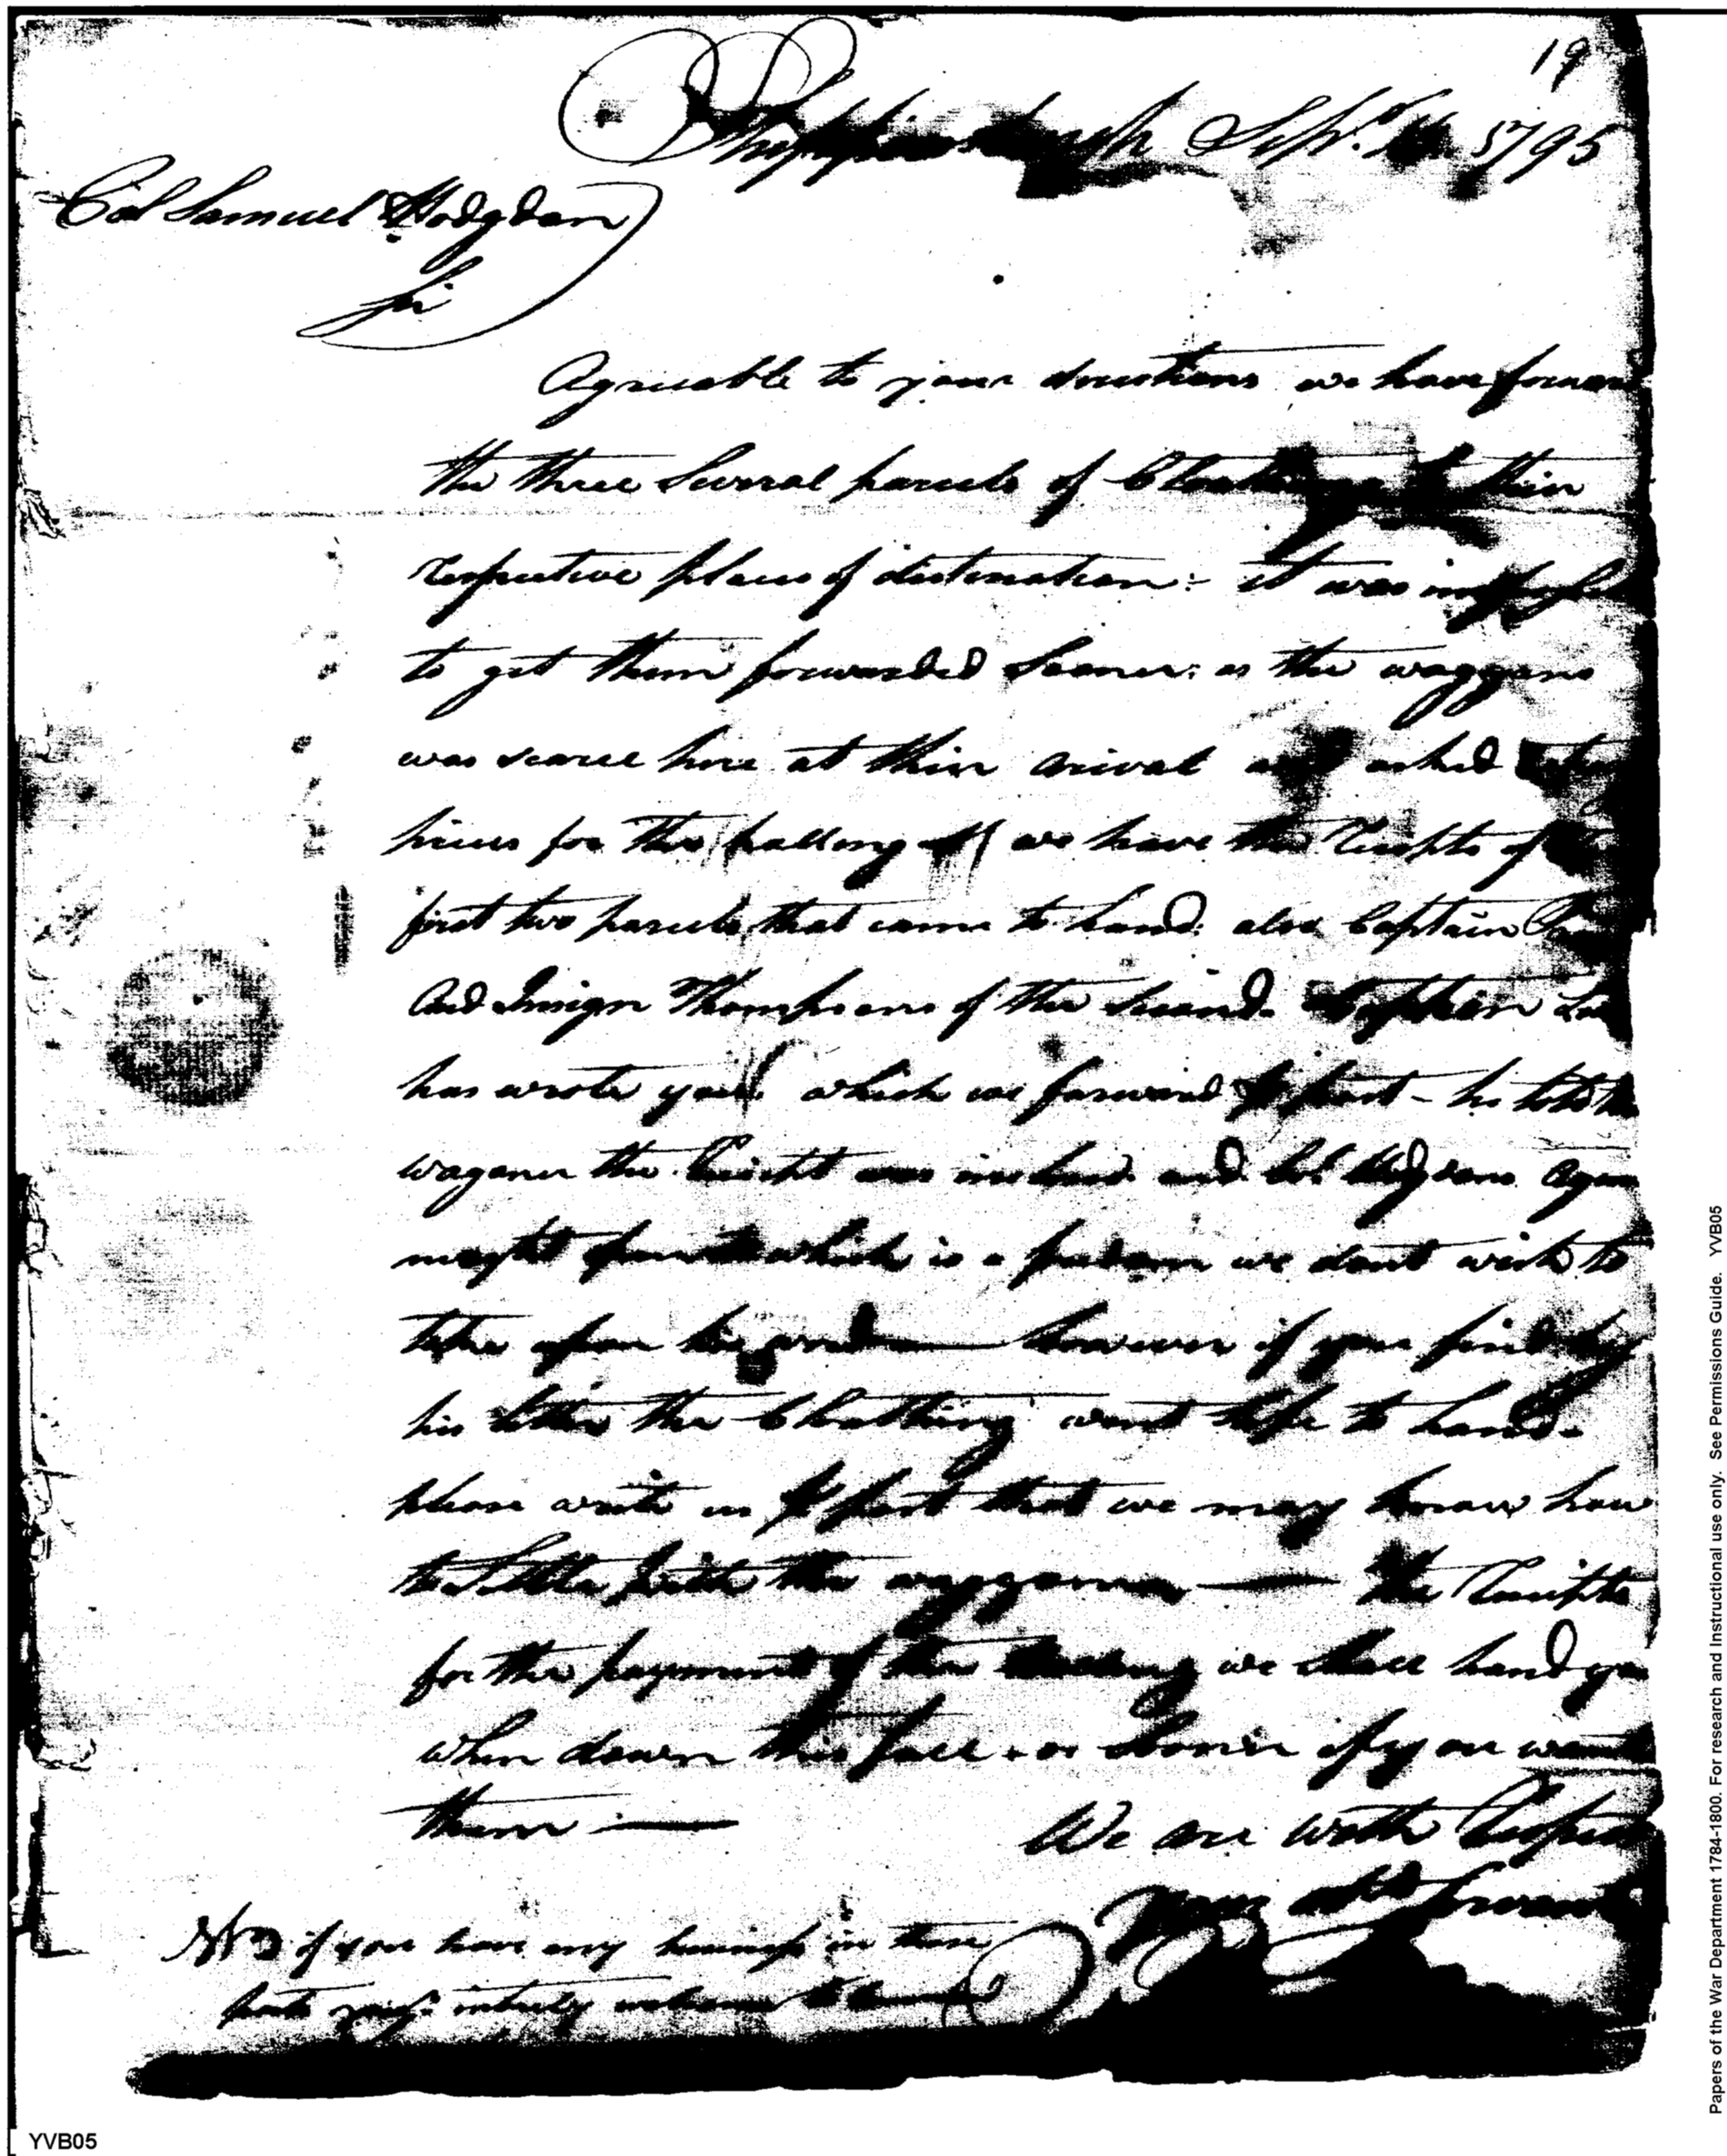 19
Shippensburgh Sepr. 1795
Col Samuel Hodgdon
Sir
Agreeable to your directions we have forward
the three Several parcels of Cloathing to their
respective places of distination:- it was impossible
to get them forwarded Sooner: as the waggons
was scarce here at their arival and asked
prices for the halling of we have the Receipts of the
first two parcels that came to hand: also Captain
And Insign Thompsons of the Second.
has wrote you which we forward P post - he told the
wagoner the Receipt was inclosed and Col Hodgdons Agen
might which is a freedom we dont wish to
take upon his word — however if you find by
his letter the Cloathing went safe to hand.
please write us P post that we may know how
to Settle with the waggoner — the Receipts
for the payment of the halling we shall hand you
when down this fall - or sooner if you want
them —
We are with Respect
Your obt Servants
NB if you have any business in these
parts
YVB05
Papers of the War Department 1784-1800. For research and Instructional use only. See Permissions Guide. YVB05